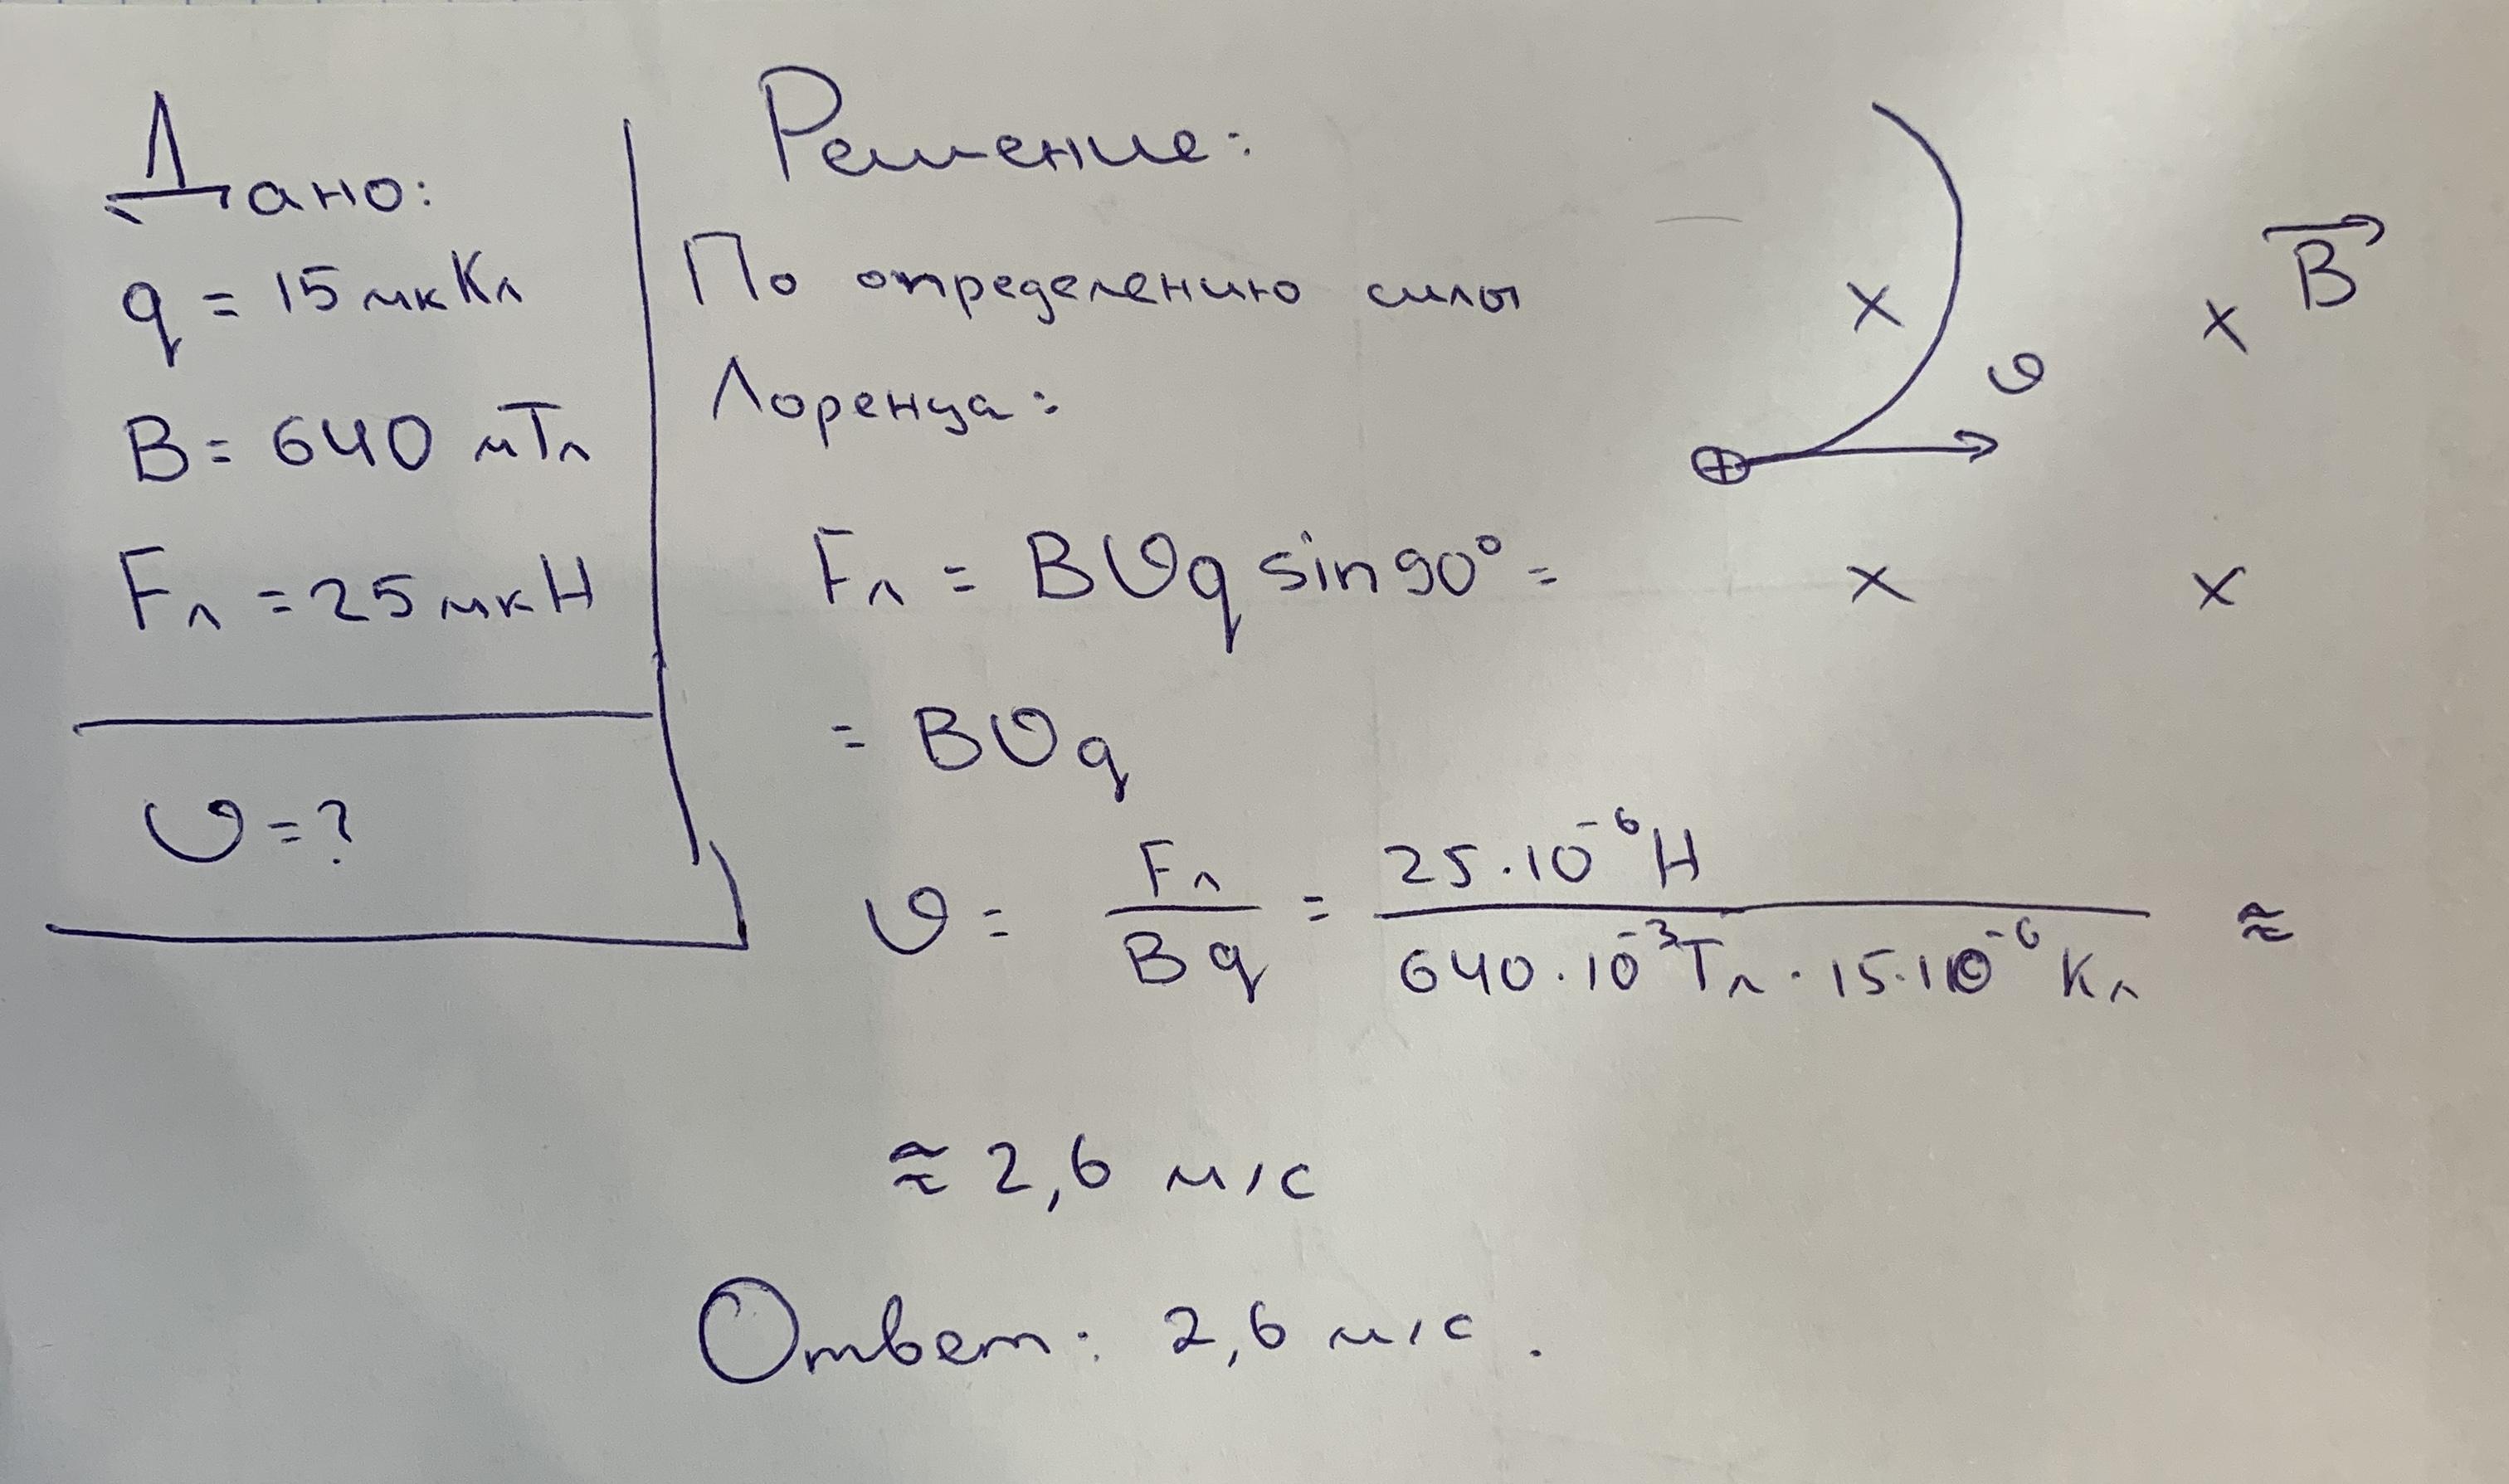 Дано:
q = 15 мкКл
B = 640 мТл
Fл = 25 мкН
υ = ?
Решение:
По определению силы
Лоренца:
Fл = Bυq sin90° =
= Bυq
υ = Fл / Bq = 25·10⁻⁶Н / 640·10⁻³Тл · 15·10⁻⁶ Кл ≈
≈ 2,6 м/с
Ответ: 2,6 м/с.
x x B⃗
υ
⊕
x x